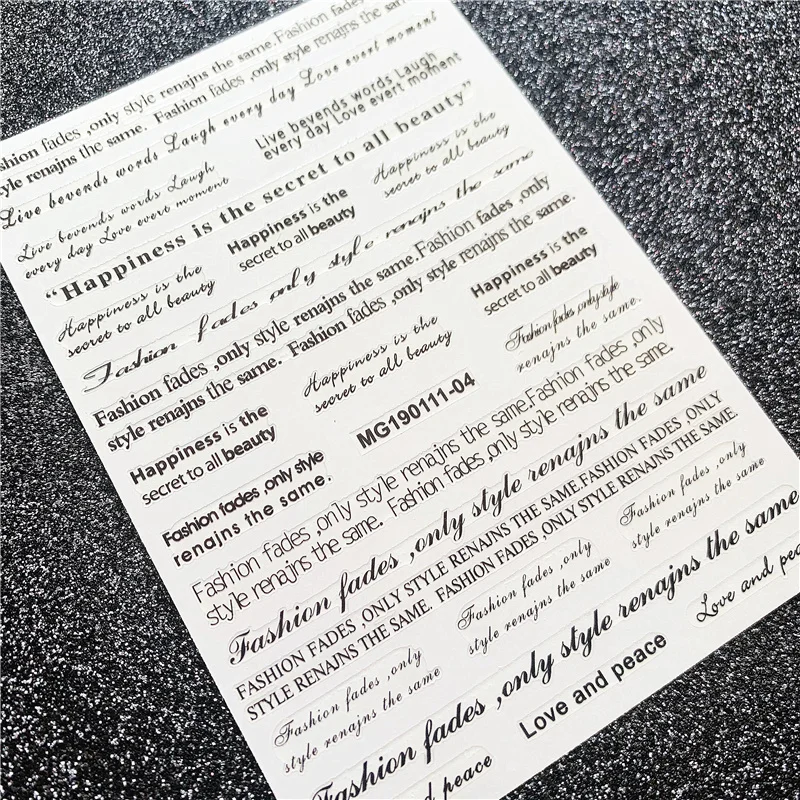 Fashion fades
shion fades ,only style renajns the same.Fashion fades ,only
yle renajns the same. Fashion fades ,only style renajns the san
Live bevends words Laugh every day Love evert moment
Live bevends words Laugh
every day Love evert moment
Live bevends words Laugh
every day Love evert moment
“Happiness is the secret to all beauty”
Happiness is the
secret to all beauty
Happiness is the
secret to all beauty
Happiness is the
secret to all beauty
Fashion fades only style renajns the same
Fashion fades ,only style renajns the same.Fashion fades ,only
style renajns the same. Fashion fades ,only style renajns the same.
Happiness is the
secret to all beauty
Happiness is the
secret to all beauty
Fashion fades ,only style
renajns the same.
Happiness is the
secret to all beauty
MG190111-04
Fashion fades ,only style
renajns the same.
Fashion fades ,only style renajns the same.Fashion fades ,only
style renajns the same. Fashion fades ,only style renajns the same.
Fashion fades ,only style renajns the same
FASHION FADES ,ONLY STYLE RENAJNS THE SAME.FASHION FADES ,ONLY
STYLE RENAJNS THE SAME. FASHION FADES ,ONLY STYLE RENAJNS THE SAME.
Fashion fades ,only
style renajns the same
Fashion fades ,only
style renajns the same
Fashion fades ,only
style renajns the same
Fashion fades ,only style renajns the same
Love and peace
Love and pea
d peace